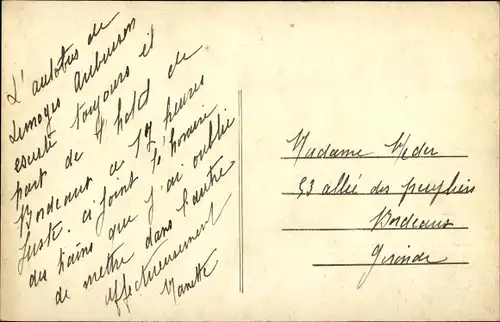 L'autobus de
Limoges Aubusson
existe toujours et
part de l'hotel de
Bordeaux a 17 heures
juste. ci joint l'horaire
des trains que j'ai oublié
de mettre dans l'autre
affectueusement
Nanette
Madame
53 allée des peupliers
Bordeaux
Gironde